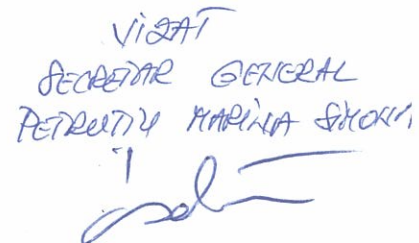 VIZAT
SECRETAR GENERAL
PETRUTIU MARINA SIMONA